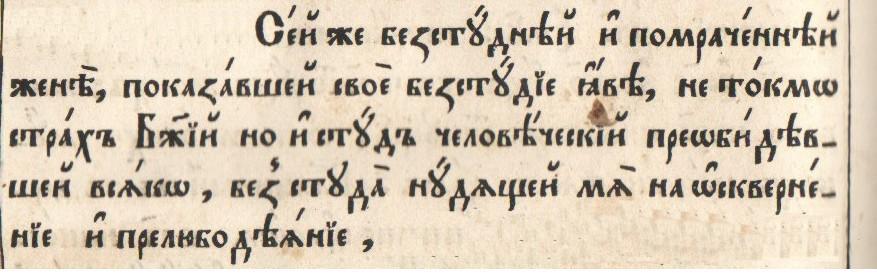 Се́й же безстꙋ́днѣй и҆ помраче́ннѣй
женѣ̀, показа́вшей своѐ безстꙋ́дїе ꙗ҆́вѣ, не то́кмѡ
стра́хъ Бж҃їй но и҆ стꙋ́дъ человѣ́ческїй преѡби́дѣв-
шей всѧ́кѡ, без̾ стꙋда̀ нꙋ́дѧщей мѧ̀ на ѡ҆скверне́-
нїе и҆ прелюбодѣѧ́нїе,